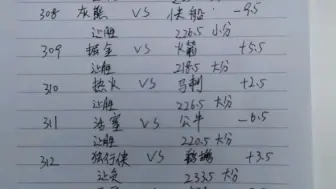 308 灰熊 VS 快船 -9.5
让胜 226.5 小分
309 掘金 VS 火箭 +5.5
让胜 218.5 大分
310 热火 VS 马刺 +2.5
让胜 226.5 大分
311 活塞 VS 公牛 -6.5
让胜 220.5 大分
312 独行侠 VS 鹈鹕 +3.5
让负 233.5 大分